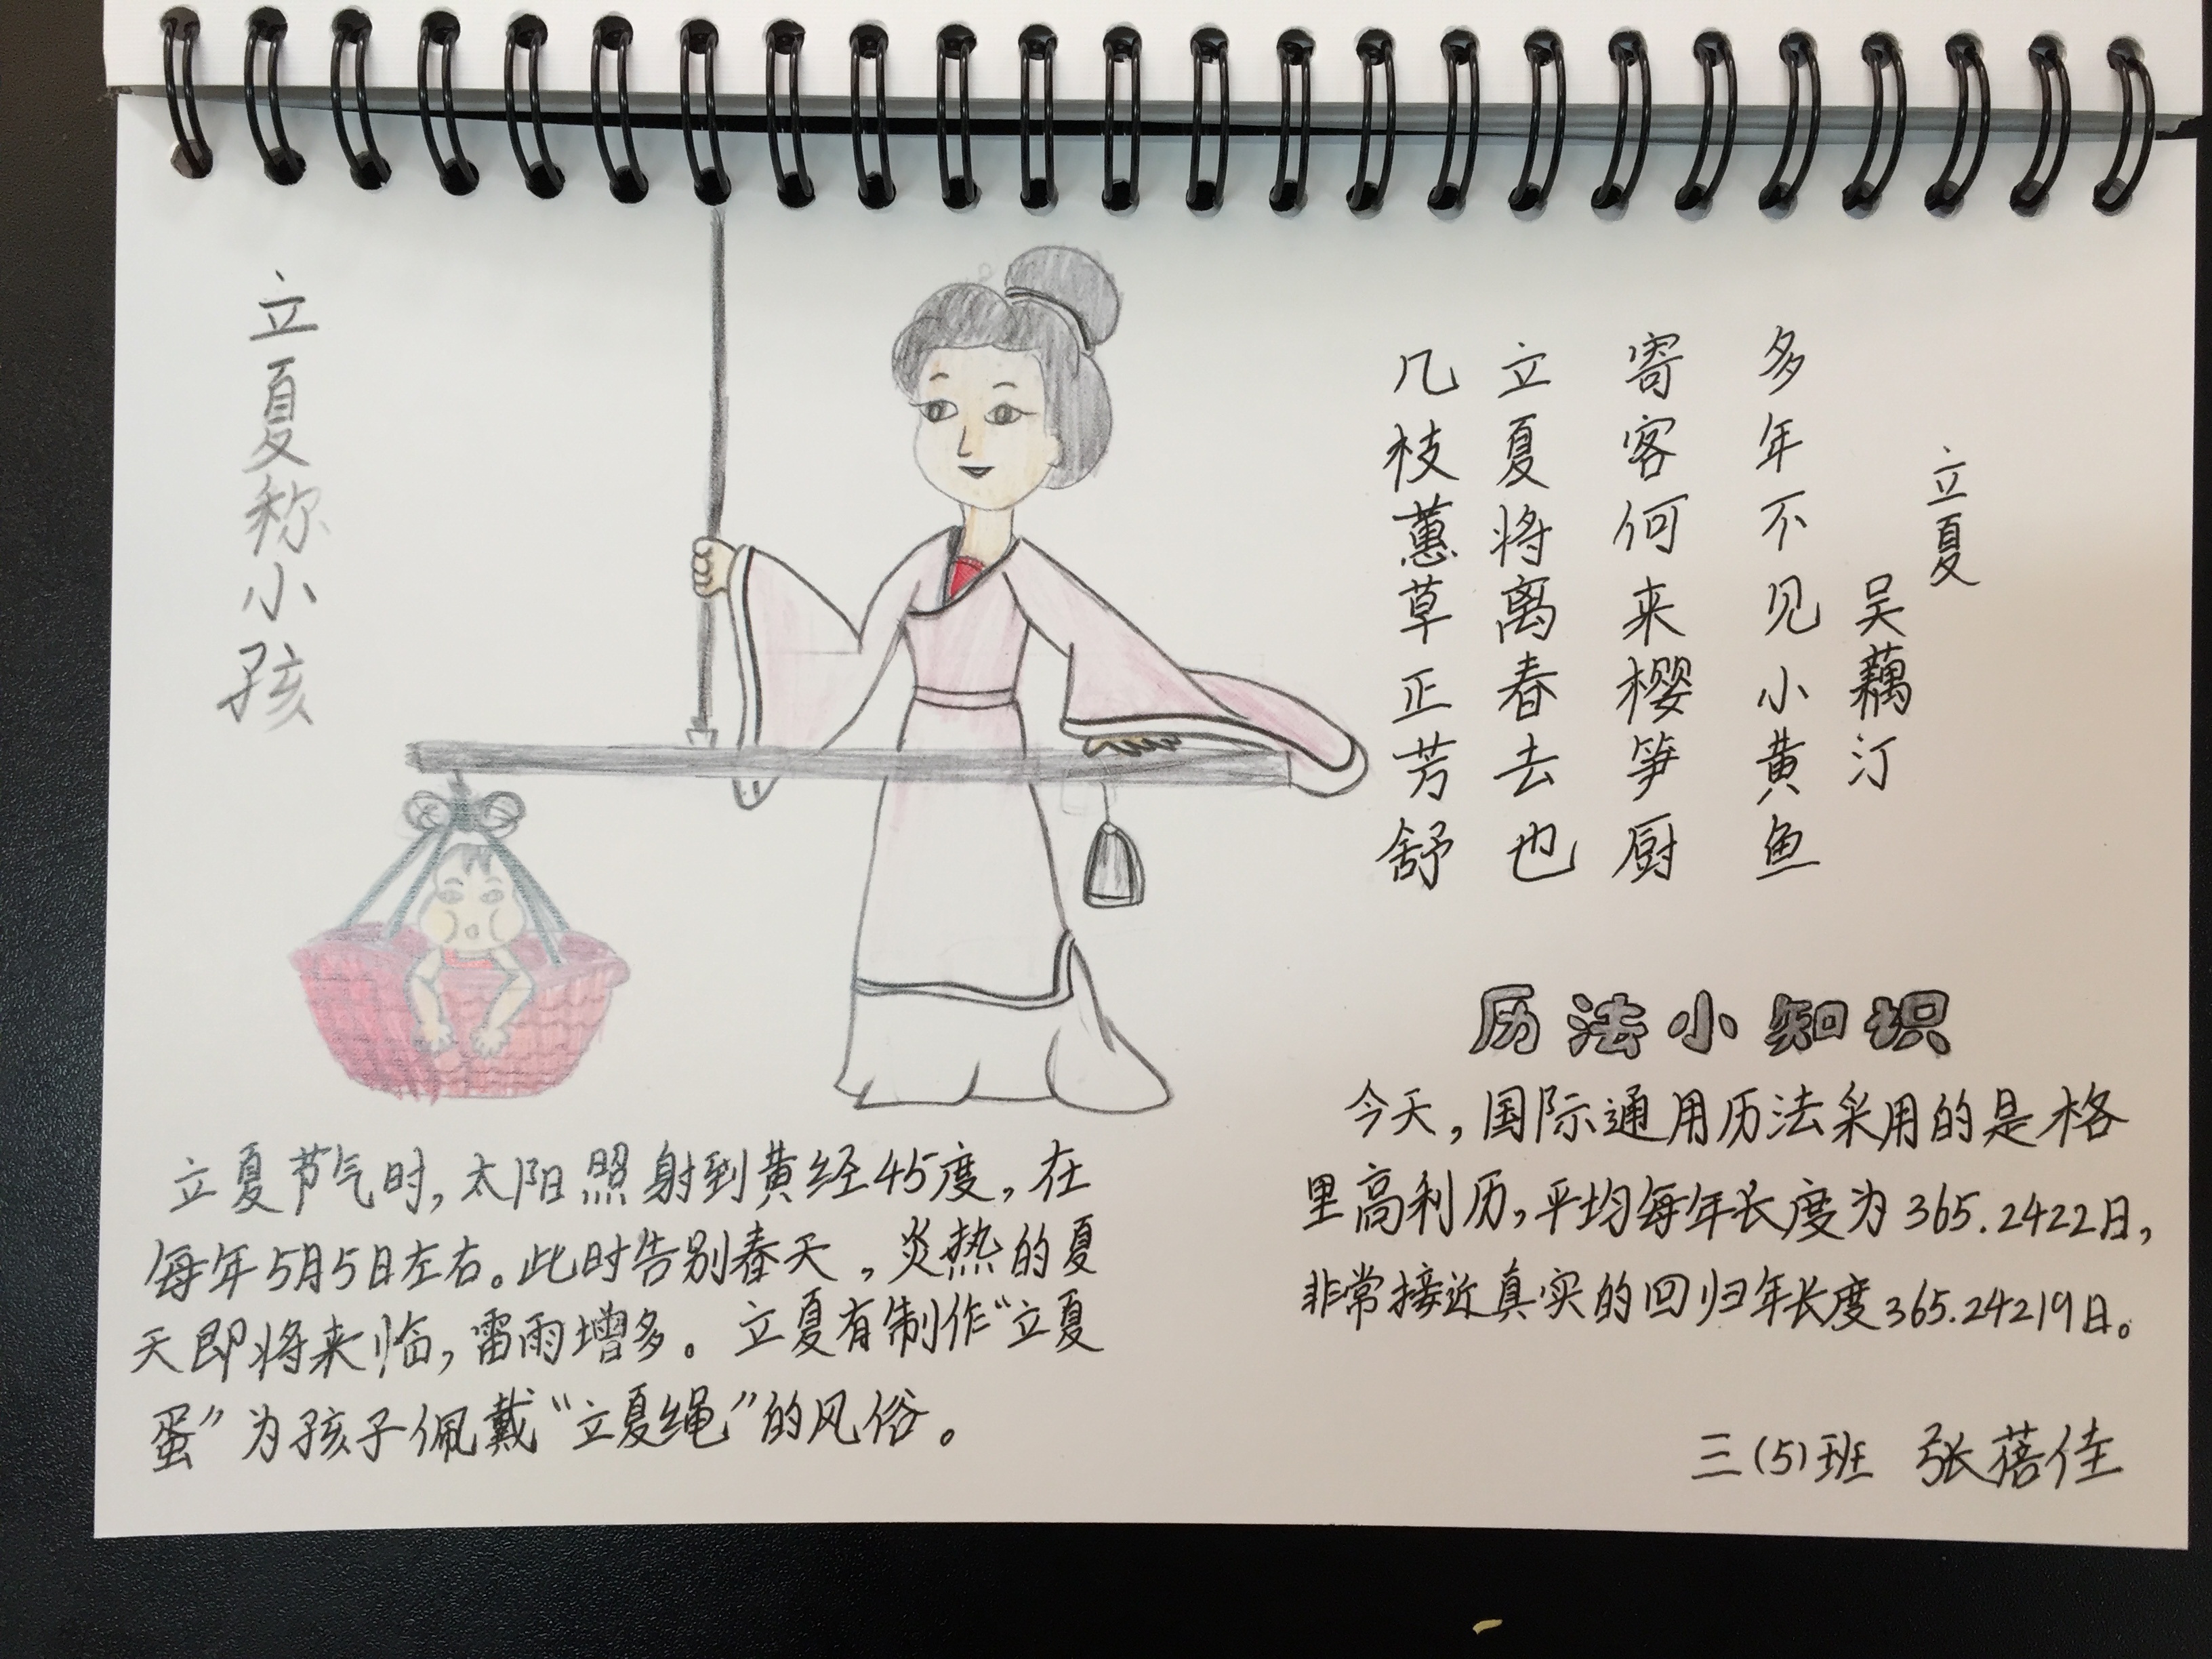 立夏称小孩
立夏
吴藕汀
多年不见小黄鱼
寄客何来樱笋厨
立夏将离春去也
几枝蕙草正芳舒
立夏节气时,太阳照射到黄经45度,在
每年5月5日左右。此时告别春天,炎热的夏
天即将来临,雷雨增多。立夏有制作“立夏
蛋”为孩子佩戴“立夏绳”的风俗。
历法小知识
今天,国际通用历法采用的是格
里高利历,平均每年长度为365.2422日,
非常接近真实的回归年长度365.24219日。
三(5)班 张蓓佳